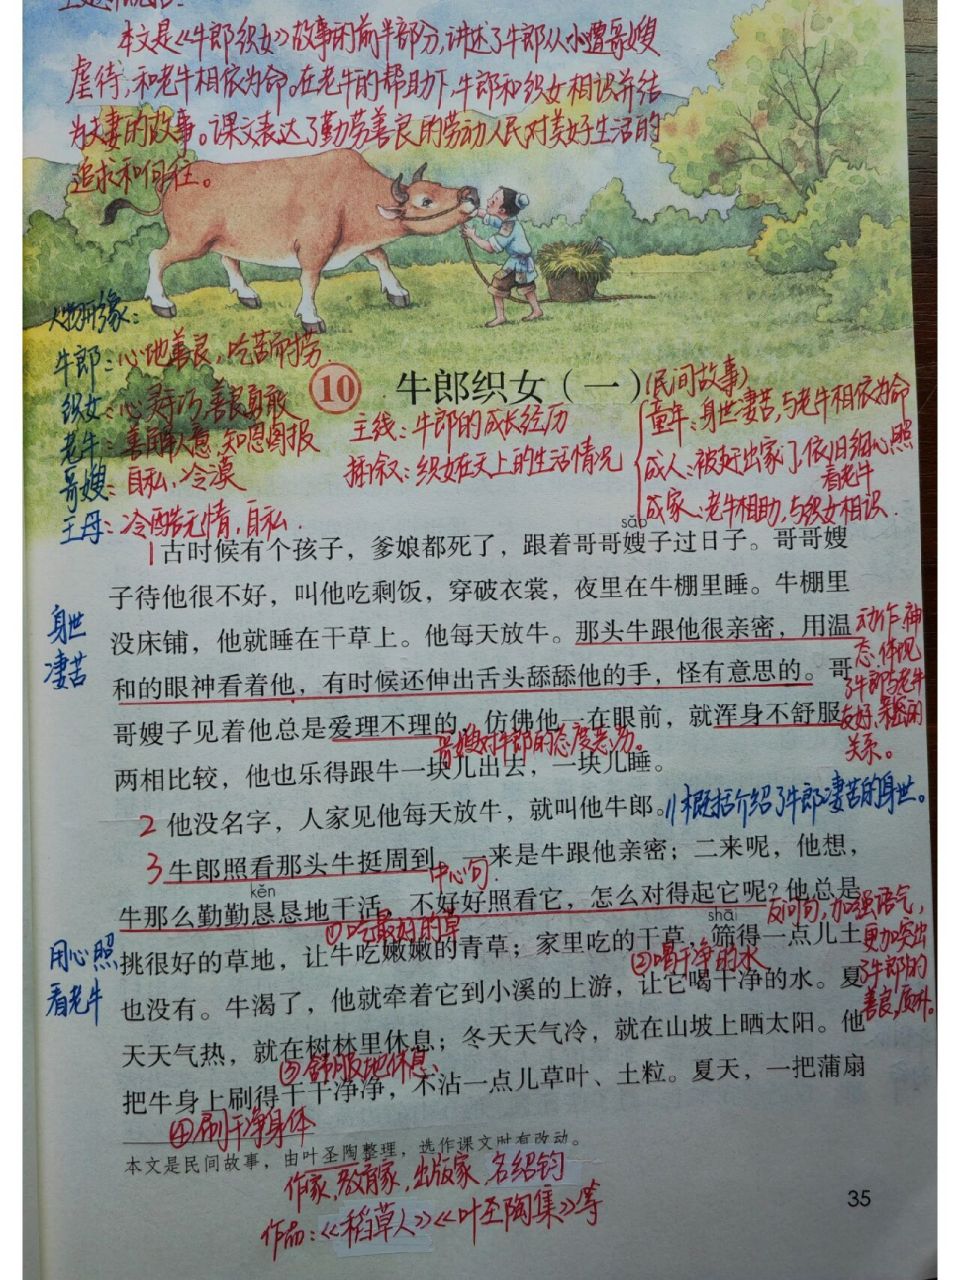 本文是《牛郎织女》故事的前半部分,讲述了牛郎从小遭哥嫂
虐待,和老牛相依为命。在老牛的帮助下,牛郎和织女相识并结
为夫妻的故事。课文表达了勤劳善良的劳动人民对美好生活的
追求和向往。
人物形象:
牛郎:心地善良,吃苦耐劳.
织女:心灵手巧 善良勇敢
老牛:善解人意 知恩图报
哥嫂:自私.冷漠
王母:冷酷无情,自私.
10 牛郎织女(一)(民间故事)
主线:牛郎的成长经历
插叙:织女在天上的生活情况
童年:身世凄苦,与老牛相依为命
成人:被赶出家了,依旧细心照
看老牛
成家:老牛相助,与织女相识.
sǎo
1古时候有个孩子,爹娘都死了,跟着哥哥嫂子过日子。哥哥嫂
子待他很不好,叫他吃剩饭,穿破衣裳,夜里在牛棚里睡。牛棚里
没床铺,他就睡在干草上。他每天放牛。那头牛跟他很亲密,用温
和的眼神看着他,有时候还伸出舌头舔舔他的手,怪有意思的。哥
哥嫂子见着他总是爱理不理的,仿佛他一在眼前,就浑身不舒服。
两相比较,他也乐得跟牛一块儿出去,一块儿睡。
身世
凄苦
动作.神
态.体现
了牛郎与老牛
友好、亲密的
关系。
哥嫂对牛郎的态度恶劣。
2 他没名字,人家见他每天放牛,就叫他牛郎。
概括介绍了牛郎凄苦的身世。
3 牛郎照看那头牛挺周到。一来是牛跟他亲密;二来呢,他想,
中心句.
kěn
牛那么勤勤恳恳地干活,不好好照看它,怎么对得起它呢?他总是
①吃最好的草
shāi
反问句,加强语气,
更加突出
了牛郎的
善良,质朴。
挑很好的草地,让牛吃嫩嫩的青草;家里吃的干草,筛得一点儿土
②喝干净的水
也没有。牛渴了,他就牵着它到小溪的上游,让它喝干净的水。夏
天天气热,就在树林里休息;冬天天气冷,就在山坡上晒太阳。他
③舒服地休息、
把牛身上刷得干干净净,不沾一点儿草叶、土粒。夏天,一把蒲扇
④刷干净身体
用心照
看老牛
本文是民间故事,由叶圣陶整理,选作课文时有改动。
作家,教育家,出版家,名绍钧
作品:《稻草人》《叶圣陶集》等
35